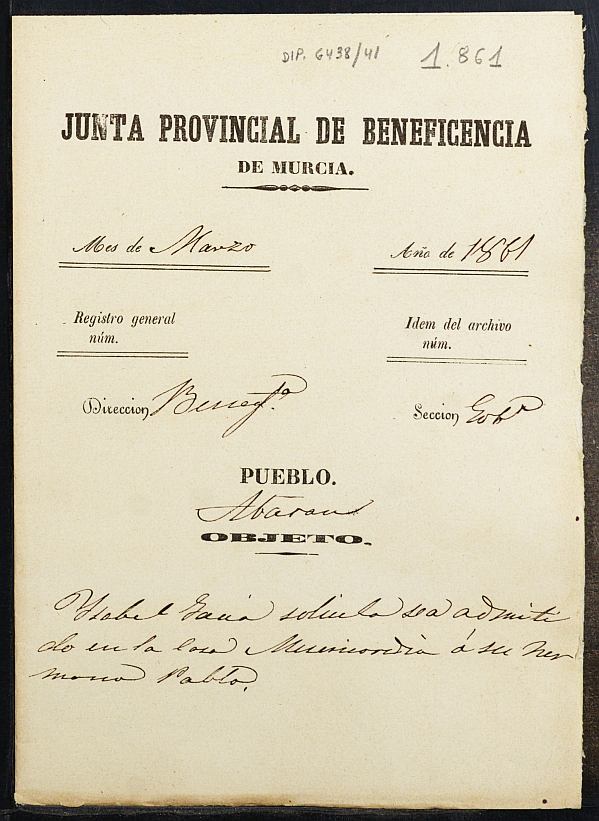 DIP. 6438/41 1.861
JUNTA PROVINCIAL DE BENEFICENCIA
DE MURCIA.
Mes de Marzo Año de 1861
Registro general Idem del archivo
núm. núm.
Direccion Benefª. Seccion Gobª
PUEBLO.
Abaran
OBJETO.
Ysabel solicita sea admiti
do en la Casa Misericordia á su her
mano Pablo.